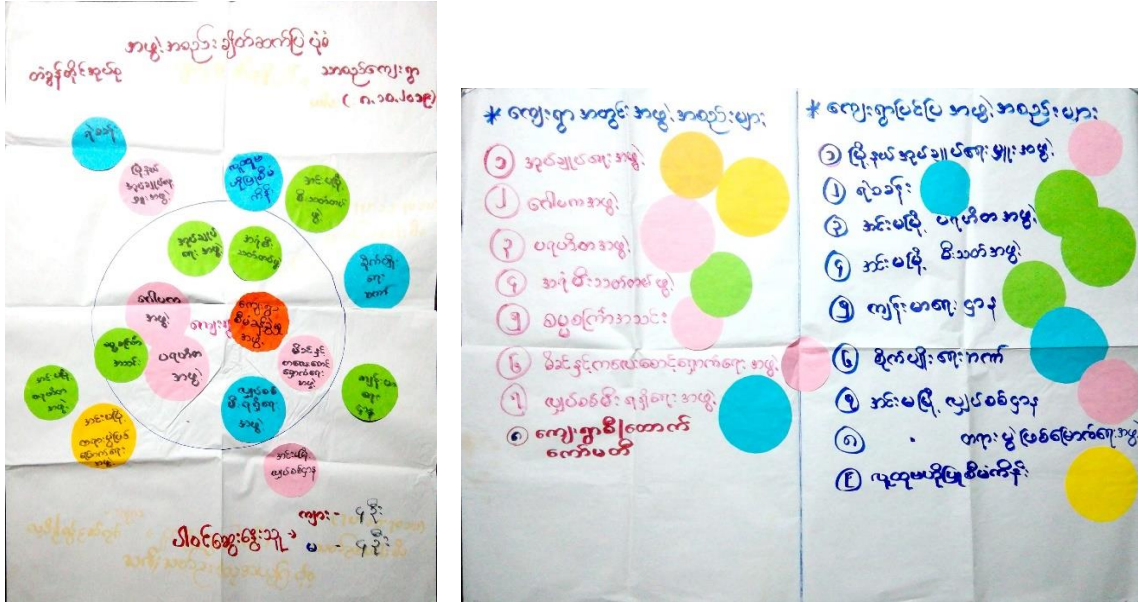 အဖွဲ့အစည်းချိတ်ဆက်ပြပုံစံ
တံခွန်တိုင်အုပ်စု
သာလှည်ကျေးရွာ
( ၈.၁၀.၂၀၁၉ )
ရဲစခန်း
မြို့နယ်
အုပ်ချုပ်ရေး
မှူးအဖွဲ့
လူထုဗဟိုပြုစီမံ
ကိန်း
အင်းမမြို့
မီးသတ်တပ်
ဖွဲ့
အုပ်ချုပ်
ရေးအဖွဲ့
အရံမီး
သတ်တပ်ဖွဲ့
စိုက်ပျိုး
ရေး
ဂေါပက
အဖွဲ့
ကျေးရွာ
အဖွဲ့
ဓမ္မစကြာ
အသင်း
ပရဟိတ
အဖွဲ့
မိခင်နှင့်
ကလေးစောင့်
ရှောက်ရေး
အဖွဲ့
လျှပ်စစ်
မီးရရှိရေး
အဖွဲ့
အင်းမမြို့
ပရဟိတ
ကျန်းမာ
ရေး
ဌာန
အင်းမမြို့
တရားပွဲဖြစ်
မြောက်ရေး
အဖွဲ့
အင်းမမြို့
လျှပ်စစ်ဌာန
ပါဝင်ဆွေးနွေးသူ
ကျား - ၄ ဦး
မ - ၄ ဦး
* ကျေးရွာအတွင်းအဖွဲ့အစည်းများ
၁ အုပ်ချုပ်ရေးအဖွဲ့
၂ ဂေါပကအဖွဲ့
၃ ပရဟိတအဖွဲ့
၄ အရံမီးသတ်တပ်ဖွဲ့
၅ ဓမ္မစကြာအသင်း
၆ မိခင်နှင့်ကလေးစောင့်ရှောက်ရေးအဖွဲ့
၇ လျှပ်စစ်မီးရရှိရေးအဖွဲ့
၈ ကျေးရွာစီထောက်
ကော်မတီ
* ကျေးရွာပြင်ပြအဖွဲ့အစည်းများ
၁ မြို့နယ်အုပ်ချုပ်ရေးမှူးအဖွဲ့
၂ ရဲစခန်း
၃ အင်းမမြို့ ပရဟိတအဖွဲ့
၄ အင်းမမြို့ မီးသတ်အဖွဲ့
၅ ကျန်းမာရေးဌာန
၆ စိုက်ပျိုးရေးဘဏ်
၇ အင်းမမြို့ လျှပ်စစ်ဌာန
၈ " တရားပွဲဖြစ်မြောက်ရေးအဖွဲ့
၉ လူထုဗဟိုပြုစီမံကိန်း